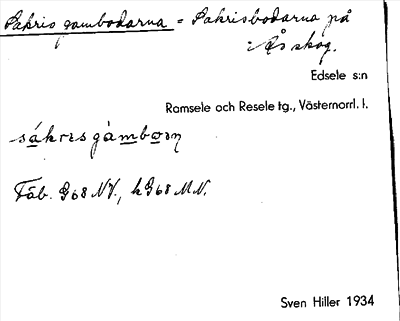 Sakris gambodarna = Sakrisbodarna på
Ås skog.
Edsele s:n
Ramsele och Resele tg., Västernorrl. l.
sákrɪsgàmboɪn
Fäb. G68 NV., k G68 MN.
Sven Hiller 1934